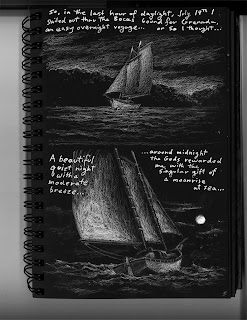 So, in the last hour of daylight, July 19th I
sailed out thru the Bocas bound for Grenada,
an easy overnight voyage... or so I thought...
A beautiful
quiet night
with a
moderate
breeze...
...around midnight
the Gods rewarded
me with the
singular gift of
a moonrise
at sea...